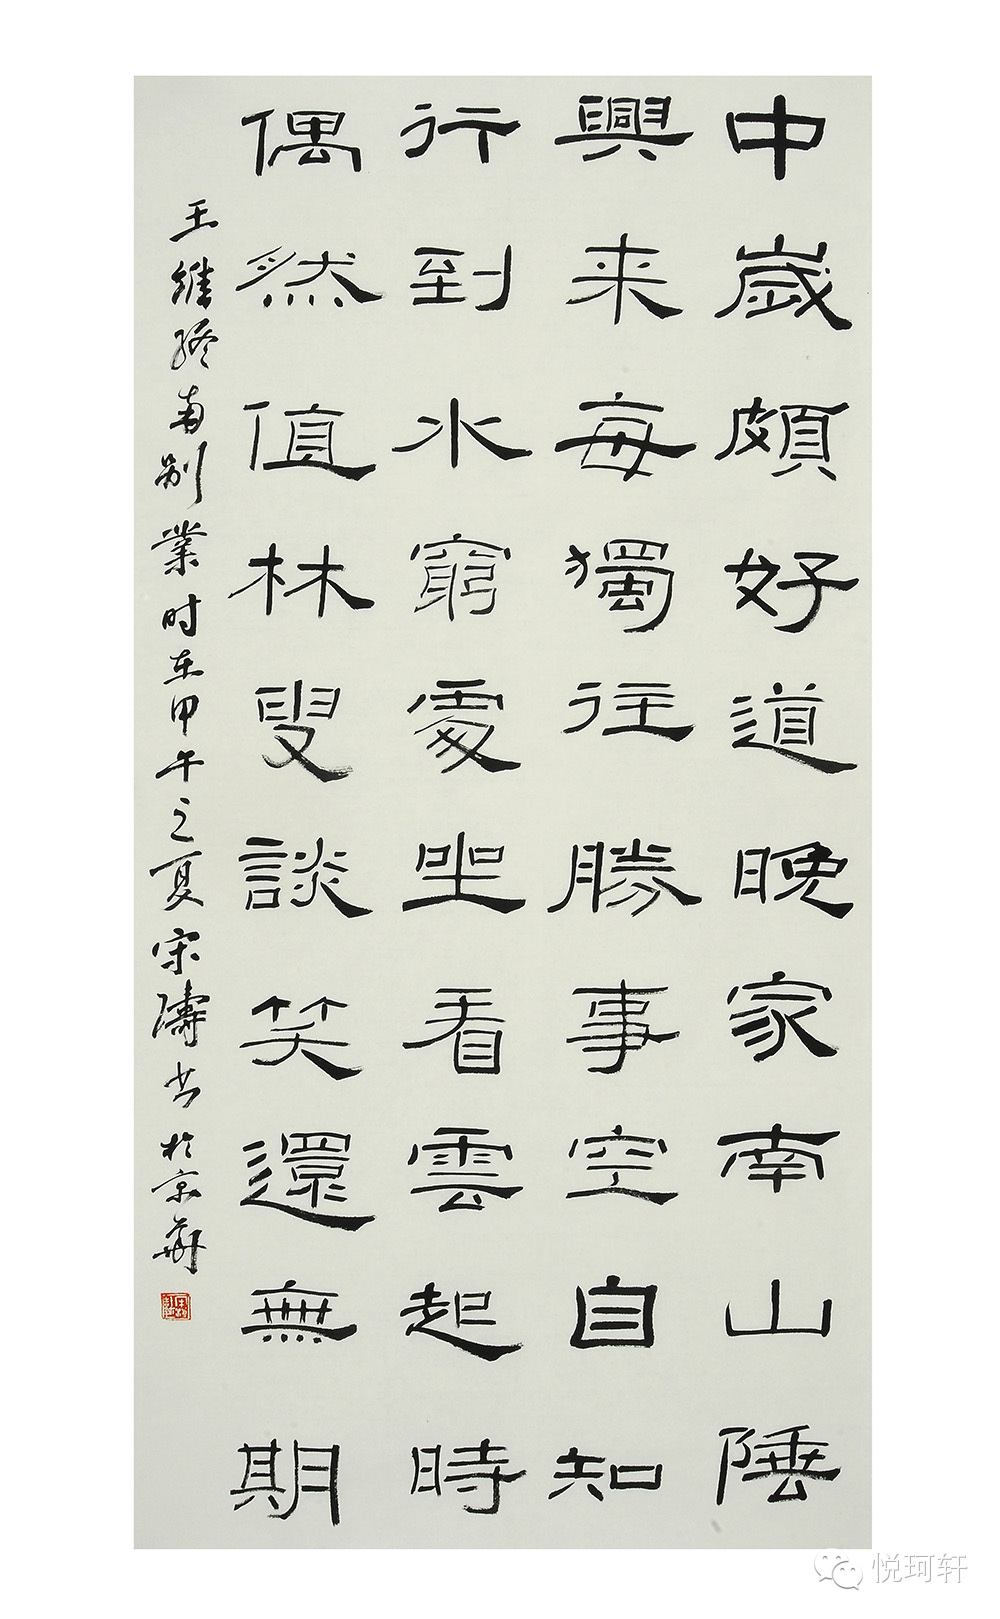 中歲頗好道晚家南山陲
興来每獨往勝事空自知
行到水窮處坐看雲起時
偶然值林叟談笑還無期
王維終南別業时在甲午之夏宋濤书於京華
悦珂轩